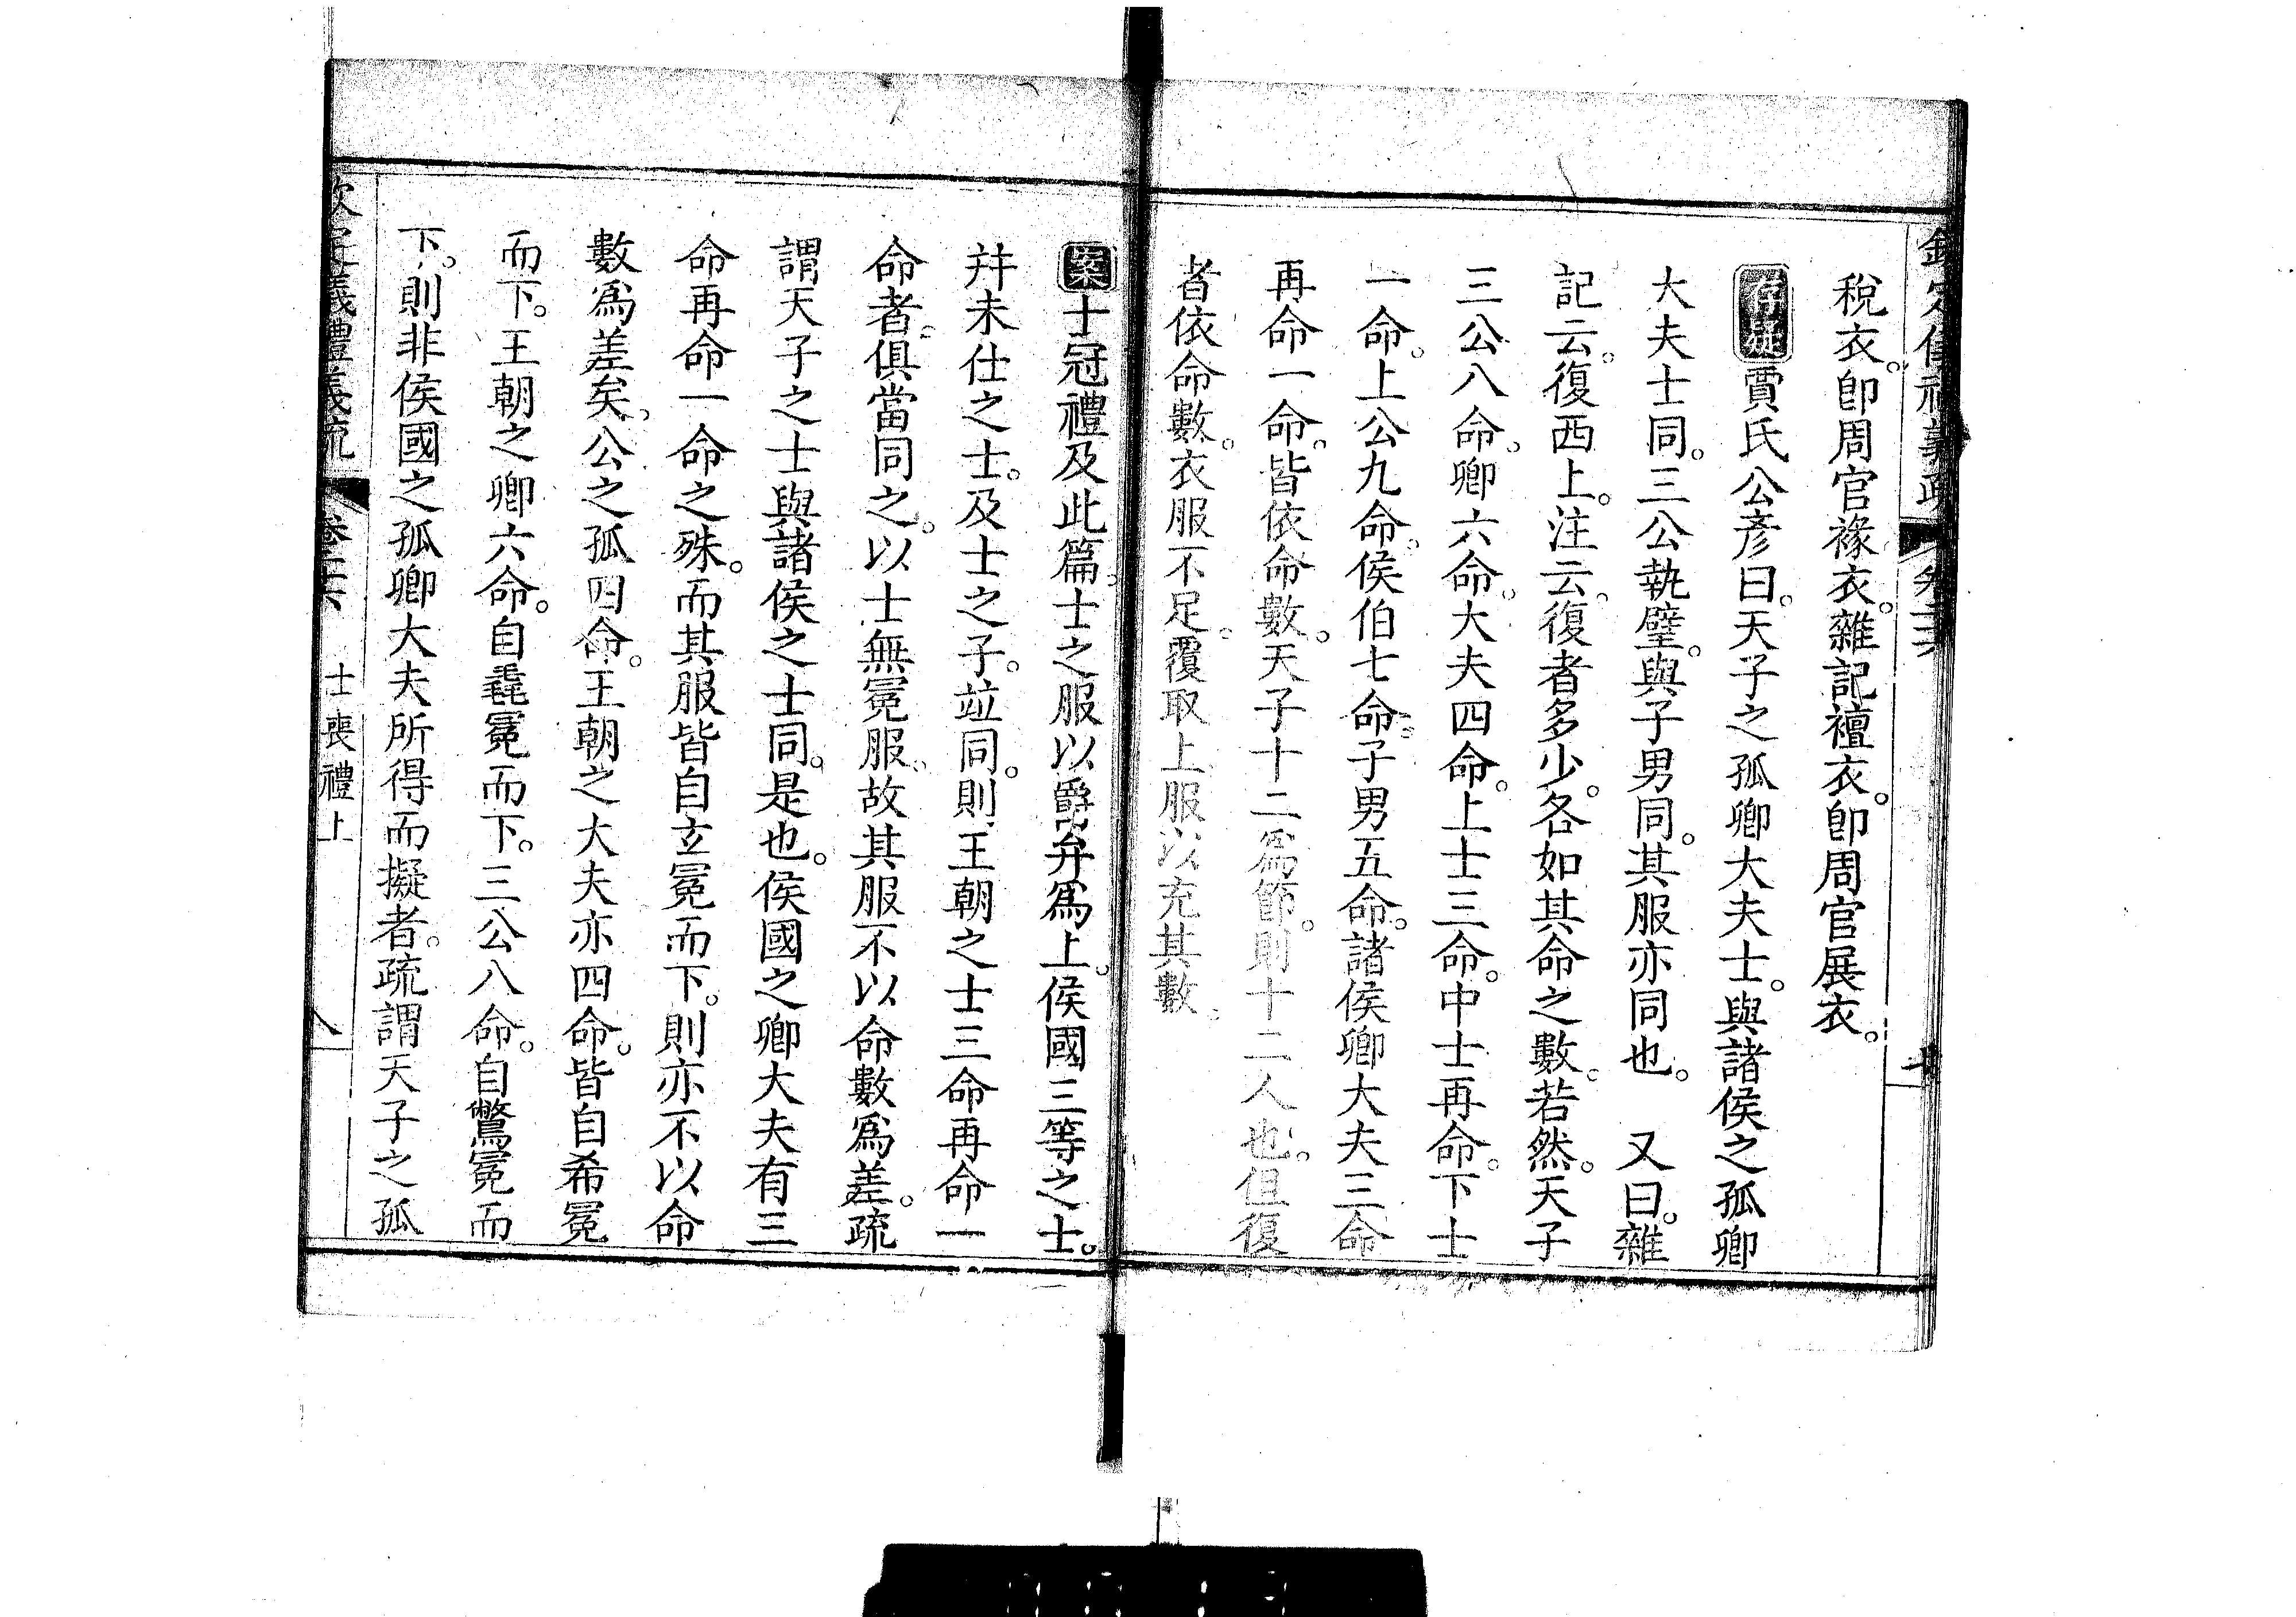 稅衣。卽周官褖衣。雜記襢衣。卽周官展衣。
存疑賈氏公彥曰。天子之孤卿大夫士。與諸侯之孤卿
大夫士同。三公執璧。與子男同。其服亦同也。又曰。雜
記云。復西上。注云。復者多少。各如其命之數。若然。天子
三公八命。卿六命。大夫四命。上士三命。中士再命。下士
一命。上公九命。侯伯七命。子男五命。諸侯卿大夫三命
再命一命。皆依命數。天子十二爲節。則十二人也。但復
者依命數。衣服不足。覆取上服以充其數。
案士冠禮及此篇。士之服以爵弁爲上。侯國三等之士。
幷未仕之士。及士之子。竝同。則王朝之士三命再命一
命者。俱當同之。以士無冕服。故其服不以命數爲差。疏
謂天子之士與諸侯之士同。是也。侯國之卿大夫有三
命再命一命之殊。而其服皆自玄冕而下。則亦不以命
數爲差矣。公之孤四命。王朝之大夫亦四命。皆自希冕
而下。王朝之卿六命。自毳冕而下。三公八命。自鷩冕而
下。則非侯國之孤卿大夫所得而擬者。疏謂天子之孤
欽定義禮義疏 卷二十六 士喪禮上 八